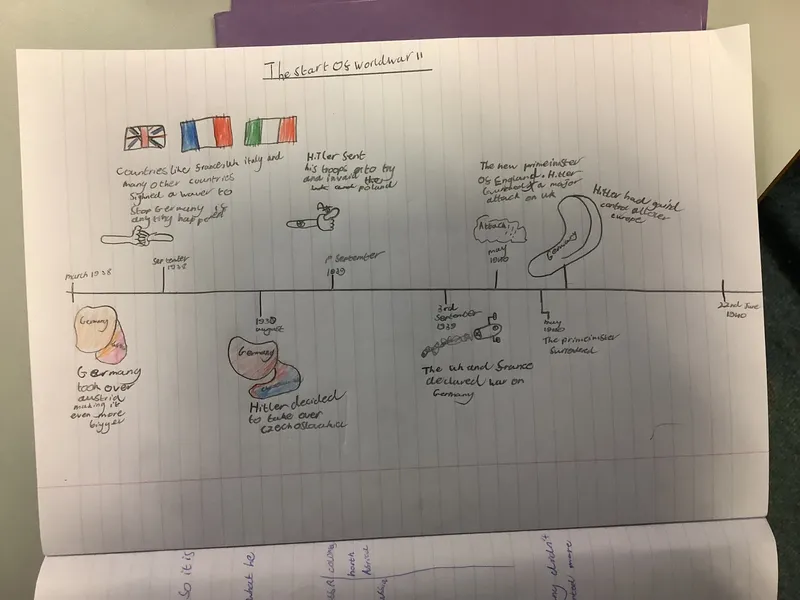 The start Of World war II
Countries like France, Uk italy and
many other countries
Signed a waver to
Stop Germany if
anything happent
HiTler Sent
his troops onto try
and invaid the
and poland
The new primeinister
Of England. Hitler
a major
attack on uk
Hitler had gaind
control all over
europe
Attack!
may
1940
Germany
march 1938
September
1938
1st September
1939
22nd June
1940
Germany
Germany
took over
austria
making it
even more
bigger
1938
august
Germany
Hitler decided
to take over
czechoslovakia
3rd
September
1939
The uk and france
declared war on
Germany
may
1940
The primeinister
Surrendered
So it is
what he